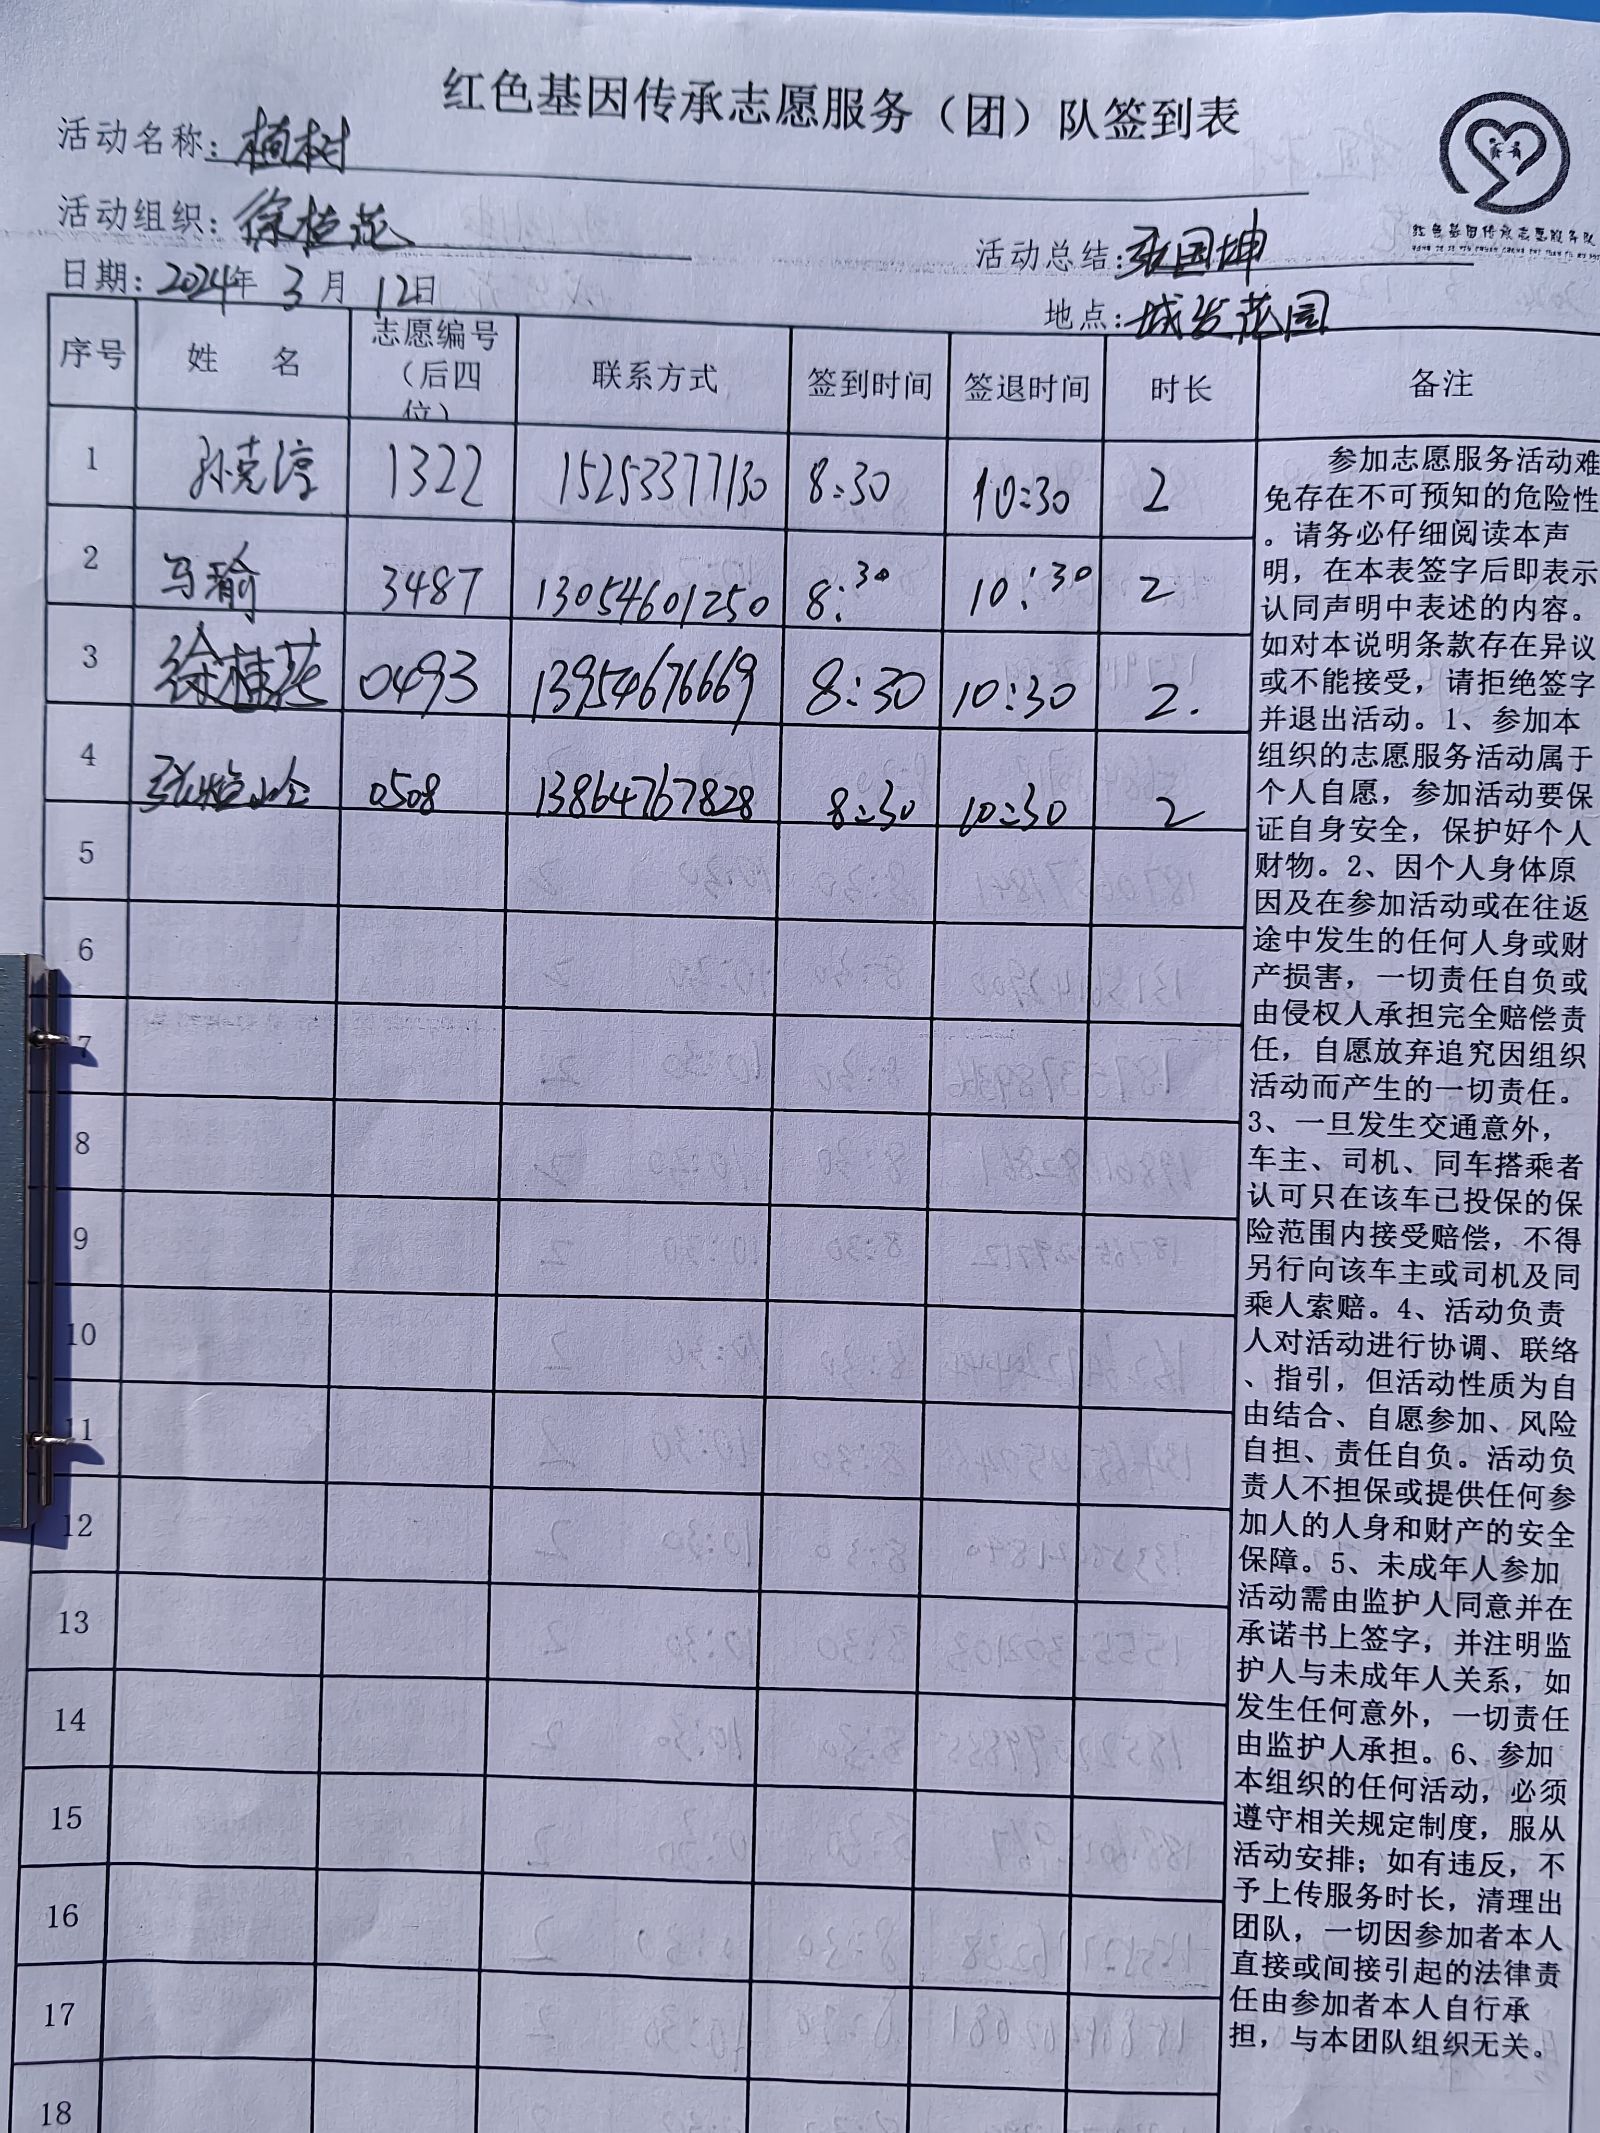 红色基因传承志愿服务（团）队签到表
活动名称：植树
活动组织：徐桂花
活动总结：张国坤
红色基因传承志愿服务队
日期：2024年 3月 12日
地点：城发花园
序号 姓 名 志愿编号（后四位） 联系方式 签到时间 签退时间 时长 备注
1 孙克淳 1322 15253377130 8:30 10:30 2
2 马瑜 3487 13054601250 8:30 10:30 2
3 徐桂花 0493 13954676669 8:30 10:30 2.
4 0508 13864767828 8:30 10:30 2
5
6
7
8
9
10
11
12
13
14
15
16
17
18
参加志愿服务活动难
免存在不可预知的危险性
。请务必仔细阅读本声
明，在本表签字后即表示
认同声明中表述的内容。
如对本说明条款存在异议
或不能接受，请拒绝签字
并退出活动。1、参加本
组织的志愿服务活动属于
个人自愿，参加活动要保
证自身安全，保护好个人
财物。2、因个人身体原
因及在参加活动或在往返
途中发生的任何人身或财
产损害，一切责任自负或
由侵权人承担完全赔偿责
任，自愿放弃追究因组织
活动而产生的一切责任。
3、一旦发生交通意外，
车主、司机、同车搭乘者
认可只在该车已投保的保
险范围内接受赔偿，不得
另行向该车主或司机及同
乘人索赔。4、活动负责
人对活动进行协调、联络
、指引，但活动性质为自
由结合、自愿参加、风险
自担、责任自负。活动负
责人不担保或提供任何参
加人的人身和财产的安全
保障。5、未成年人参加
活动需由监护人同意并在
承诺书上签字，并注明监
护人与未成年人关系，如
发生任何意外，一切责任
由监护人承担。6、参加
本组织的任何活动，必须
遵守相关规定制度，服从
活动安排；如有违反，不
予上传服务时长，清理出
团队，一切因参加者本人
直接或间接引起的法律责
任由参加者本人自行承
担，与本团队组织无关。